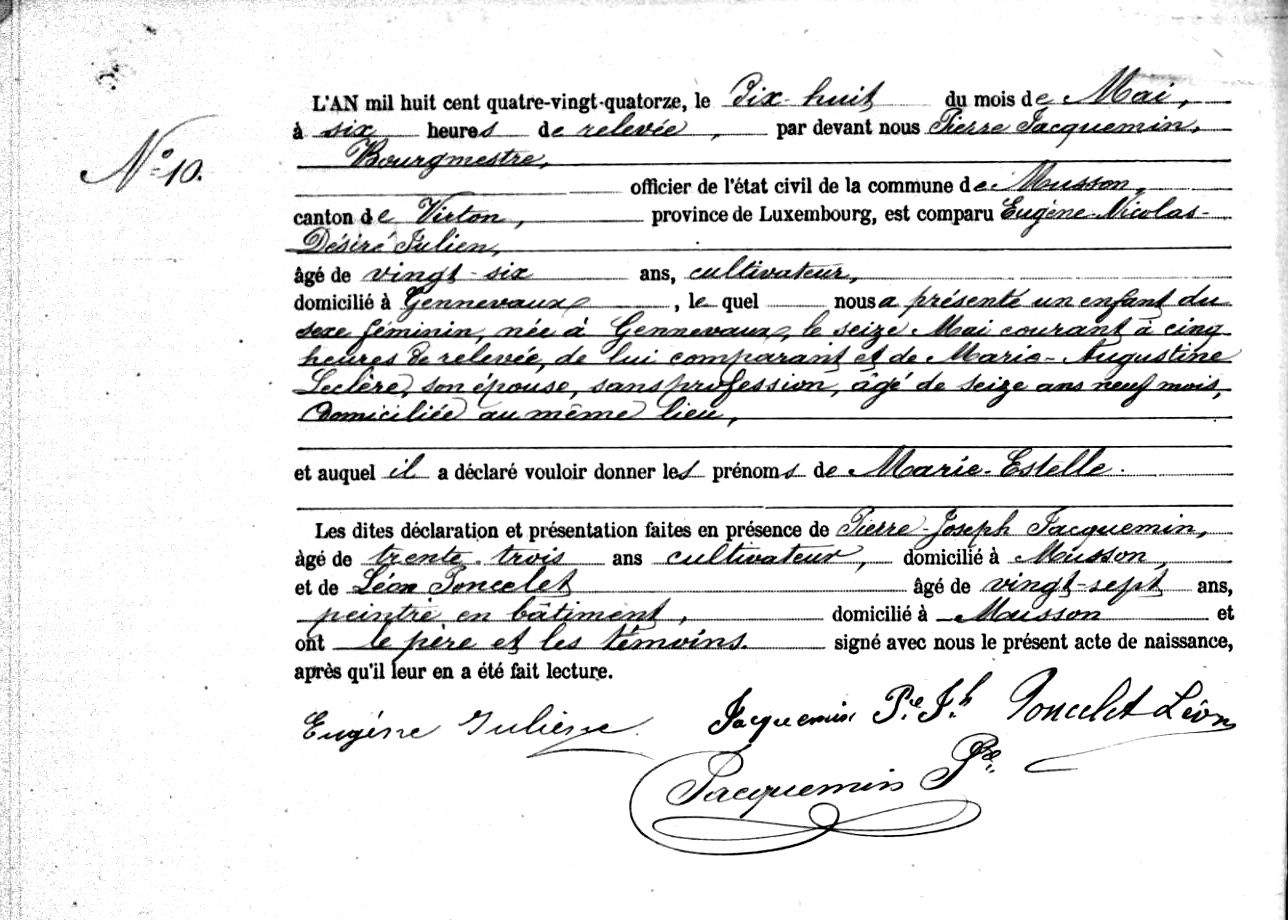 L'AN mil huit cent quatre-vingt-quatorze, le Dix-huit du mois de Mai,
à six heures de relevée, par devant nous Pierre Jacquemin,
Bourgmestre,
N° 10.
officier de l'état civil de la commune de Musson,
canton de Virton, province de Luxembourg, est comparu Eugène-Nicolas-
Désiré Julien,
âgé de vingt-six ans, cultivateur,
domicilié à Gennevaux, le quel nous a présenté un enfant du
sexe féminin, née à Gennevaux, le seize Mai courant à cinq
heures de relevée, de lui comparant et de Marie-Augustine
Leclère, son épouse, sans profession, âgé de seize ans neuf mois,
domiciliée au même lieu,
et auquel il a déclaré vouloir donner les prénoms de Marie-Estelle.
Les dites déclaration et présentation faites en présence de Pierre-Joseph Jacquemin,
âgé de trente-trois ans cultivateur, domicilié à Musson,
et de Léon Poncelet âgé de vingt-sept ans,
peintre en bâtiment, domicilié à Musson et
ont le père et les témoins. signé avec nous le présent acte de naissance,
après qu'il leur en a été fait lecture.
Eugéne Julien Jacquemin Pre Jh Poncelet Léon
Jacquemin Pre